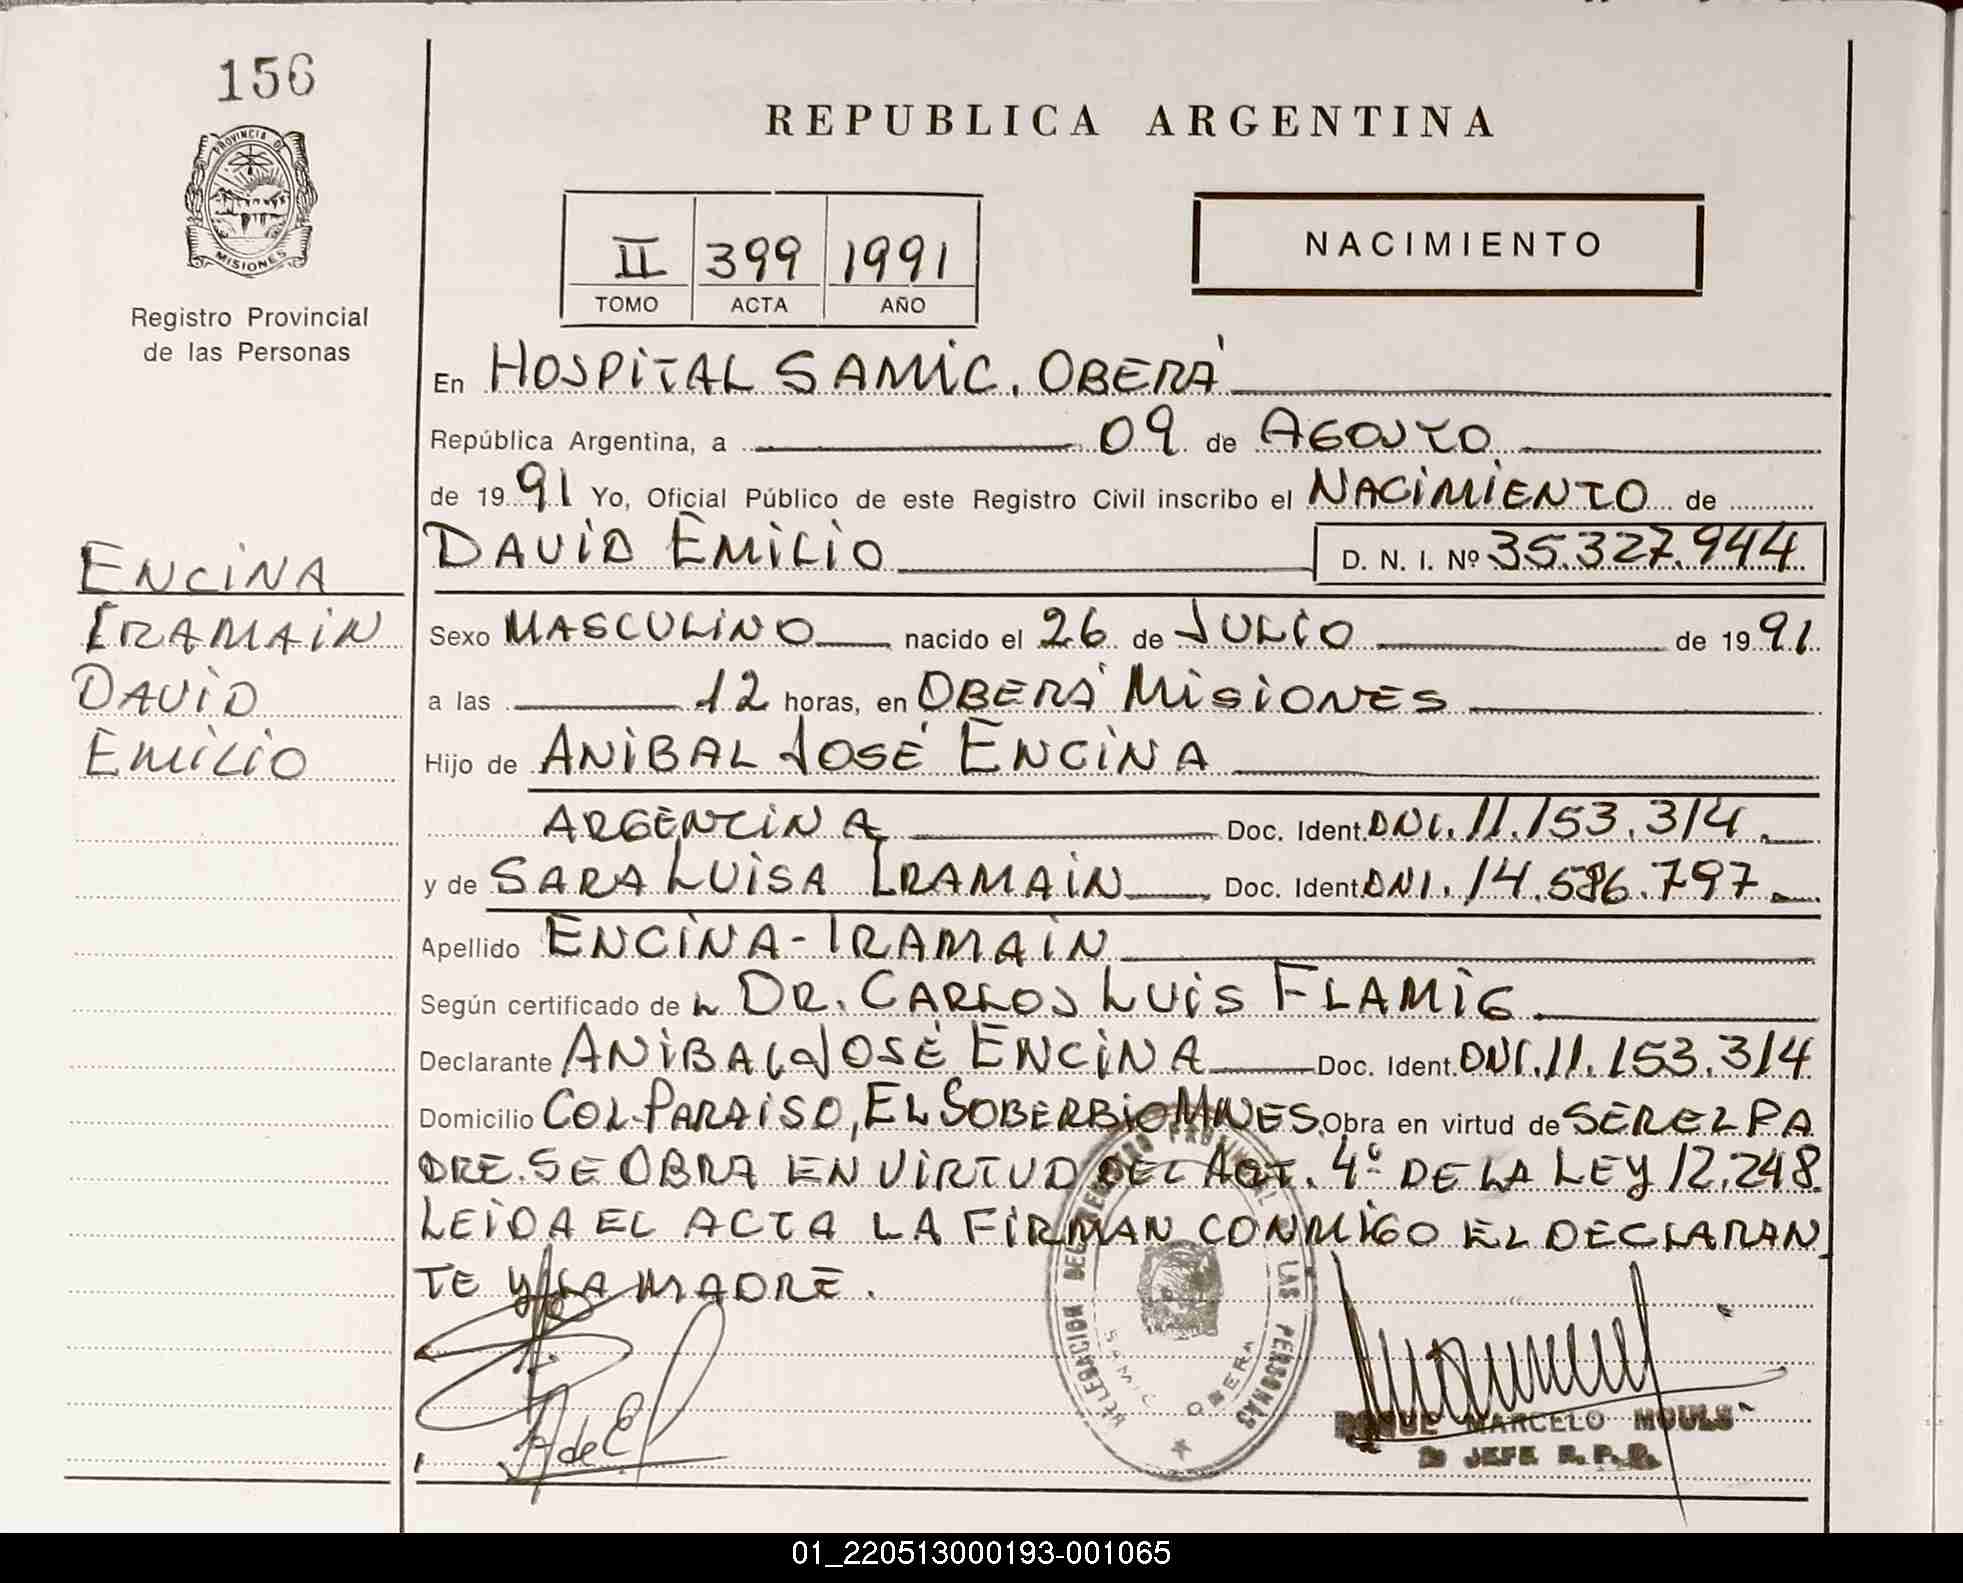 156
PROVINCIA DE
MISIONES
Registro Provincial
de las Personas
REPUBLICA ARGENTINA
II 399 1991
TOMO ACTA AÑO
NACIMIENTO
En HOSPITAL SAMIC. OBERÁ
República Argentina, a 09 de AGOSTO
de 1991 Yo, Oficial Público de este Registro Civil inscribo el NACIMIENTO de
DAVID EMILIO D. N. I. Nº 35.327.944
ENCINA
IRAMAIN
DAVID
EMILIO
Sexo MASCULINO nacido el 26 de JULIO de 1991
a las 12 horas, en OBERÁ MISIONES
Hijo de ANIBAL JOSÉ ENCINA
ARGENTINA Doc. Ident. DNI. 11.153.314.
y de SARA LUISA IRAMAIN Doc. Ident. DNI. 14.586.797
Apellido ENCINA-IRAMAIN
Según certificado de L DR. CARLOS LUIS FLAMIG
Declarante ANIBAL JOSÉ ENCINA Doc. Ident. DNI. 11.153.314
Domicilio COL. PARAISO, EL SOBERBIO MNES. Obra en virtud de SER EL PA
DRE. SE OBRA EN VIRTUD DEL ART. 4º DE LA LEY 12.248.
LEIDA EL ACTA LA FIRMAN CONMIGO EL DECLARAN
TE Y LA MADRE.
DELEGACION DEL REGISTRO PROVINCIAL DE LAS PERSONAS
SAMIC OBERA
A de E
ROQUE MARCELO MOULS
JEFE R.P.P.
01_220513000193-001065